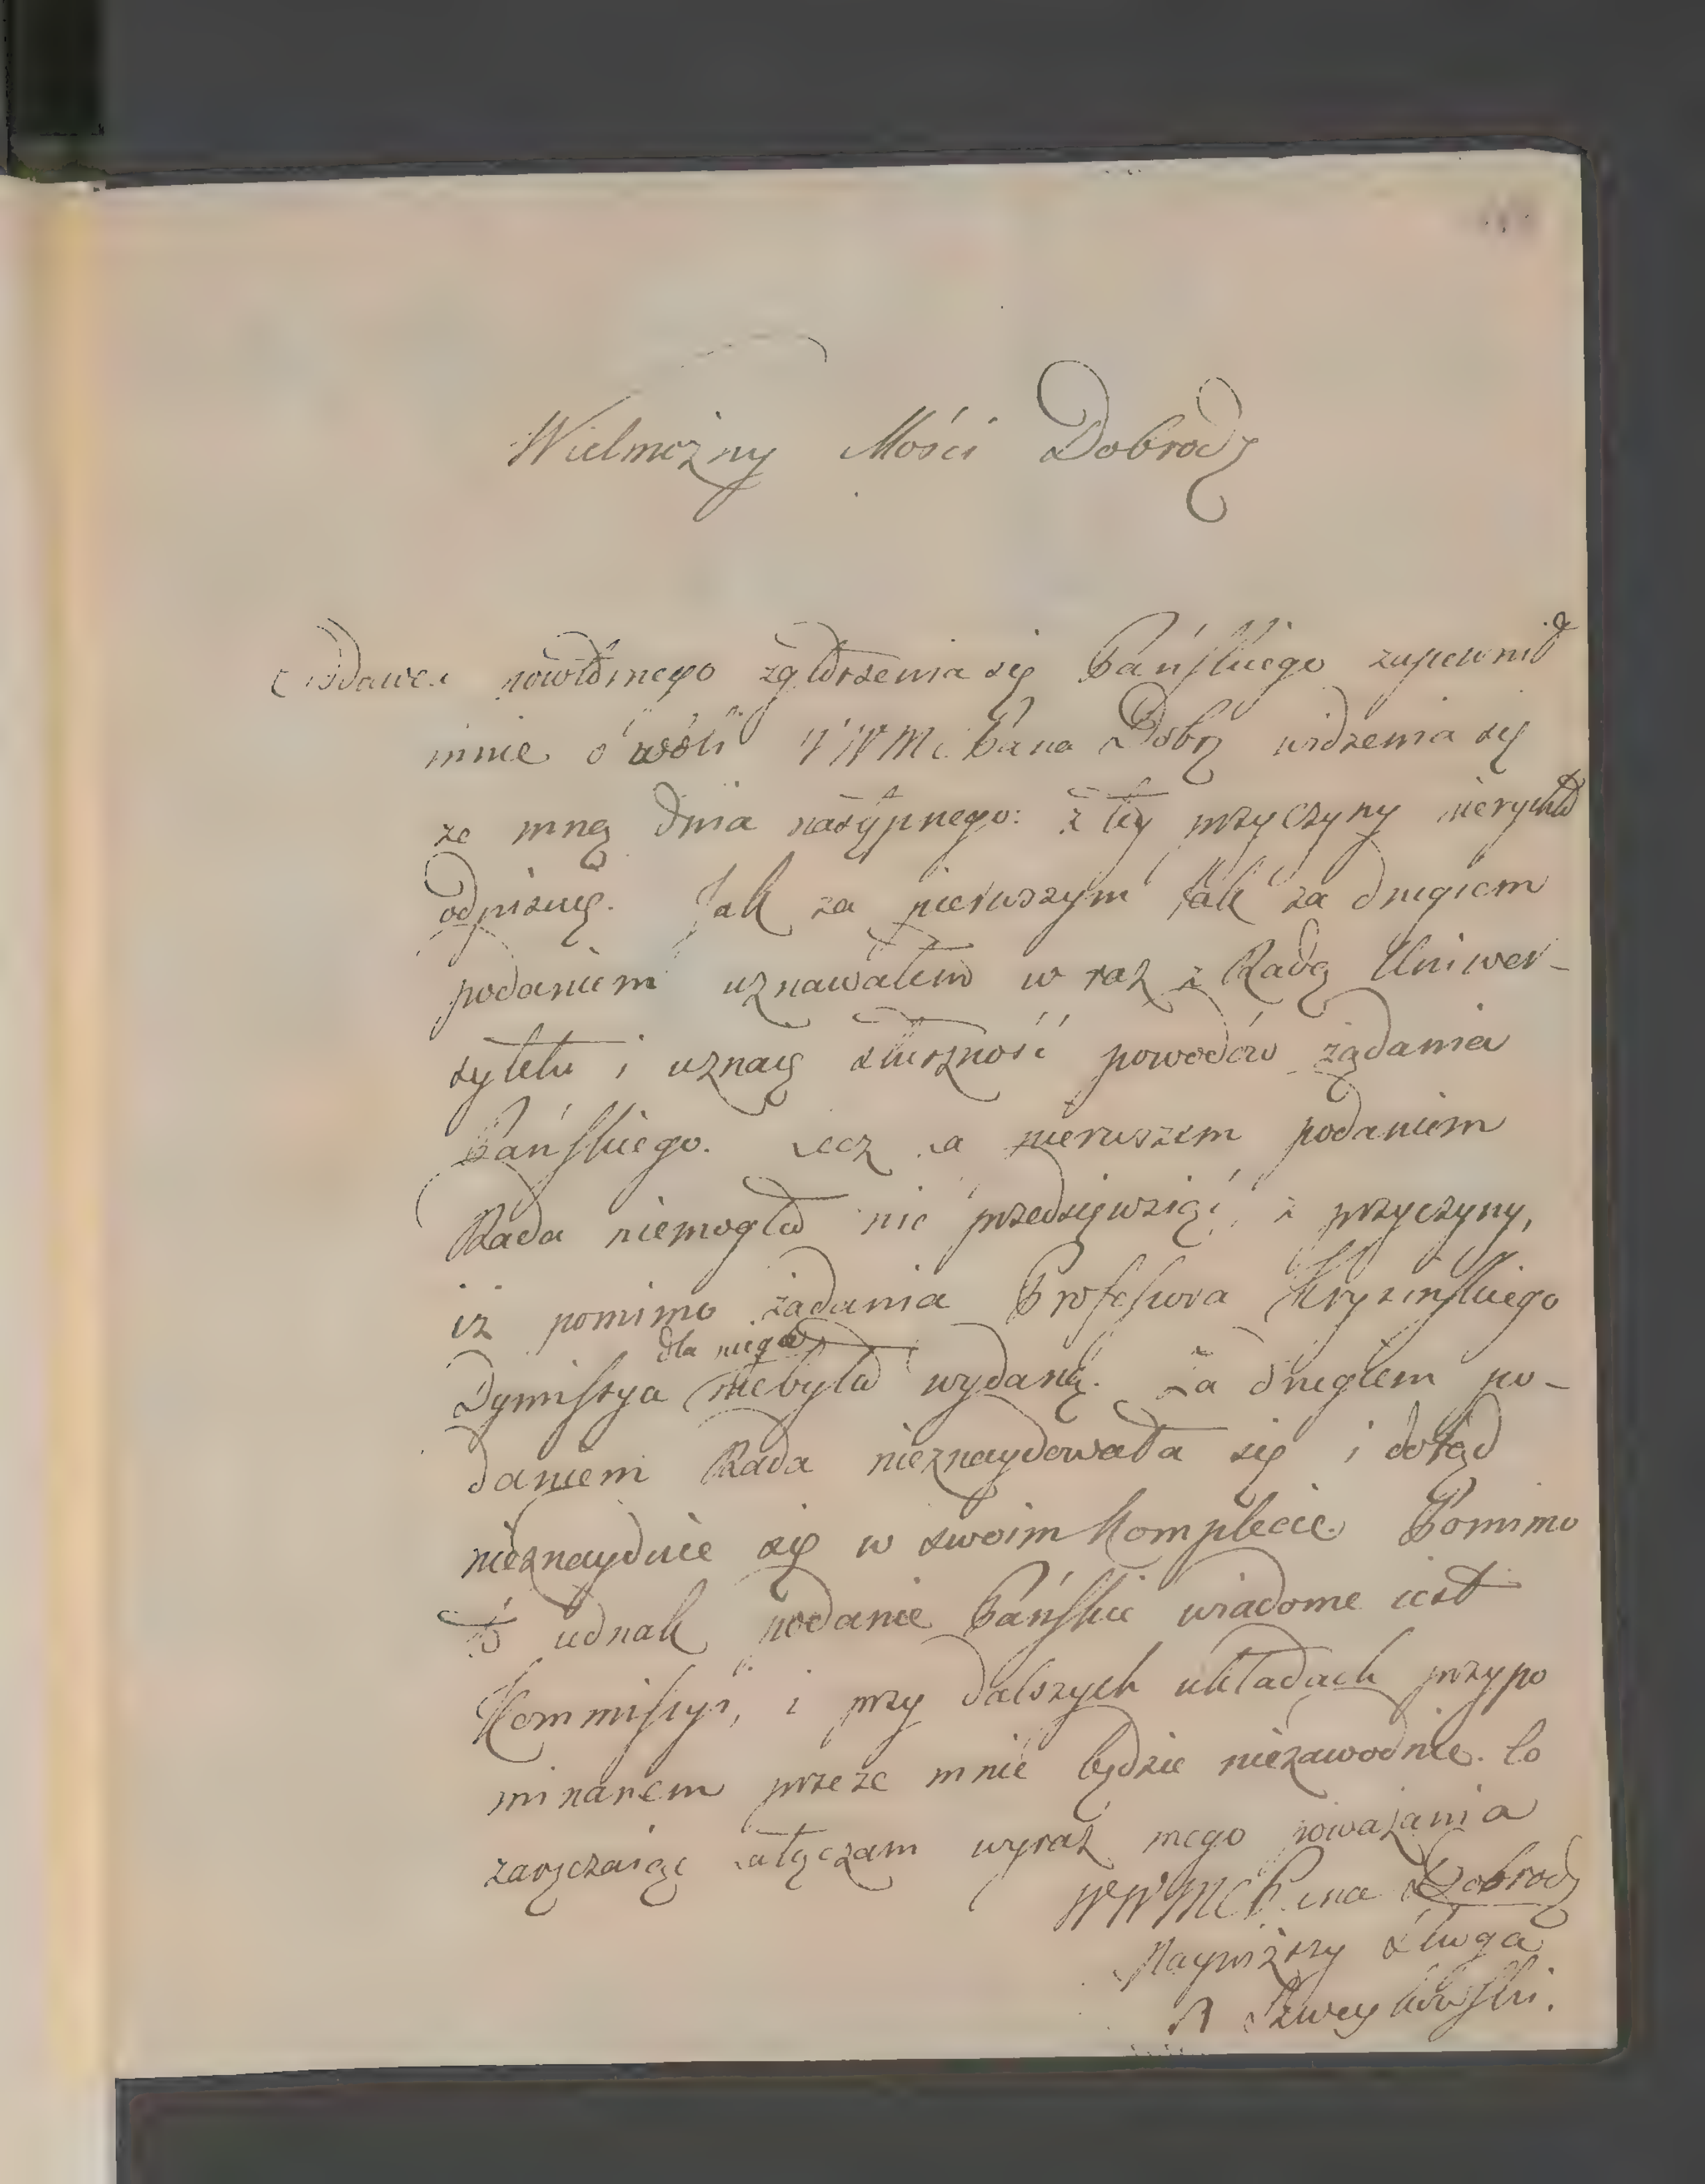 Wielmożny Mości Dobrodz
Oddawca powtórnego zgłoszenia się Pańskiego zapewnił
mnie o woli WWMc Pana Dobrz widzenia się
ze mną dnia następnego: z tey przyczyny nierychło
odpisuię. Jak za pierwszym tak za drugiem
podaniem uznawałem w raz z Radą Uniwer-
sytetu i uznaię słuszność powodów żądania
Pańskiego. Lecz za pierwszem podaniem
Rada niemogła nic przedsięwziąć, z przyczyny,
iż pomimo żądania Professora Kryzińskiego
Dymissya dla niego niebyła wydaną. Za drugiem po-
daniem Rada nieznaydowała się i dotąd
nieznayduie się w swoim Komplecie. Pomimo
to iednak podanie Pańskie wiadome iest
Kommissyi, i przy dalszych układach przypo
minanem przeze mnie będzie niezawodnie. Co
zaręczaiąc załączam wyraz mego poważania
WWMC Pana Dobrodz
Nayniższy Sługa
A Szweykowski.